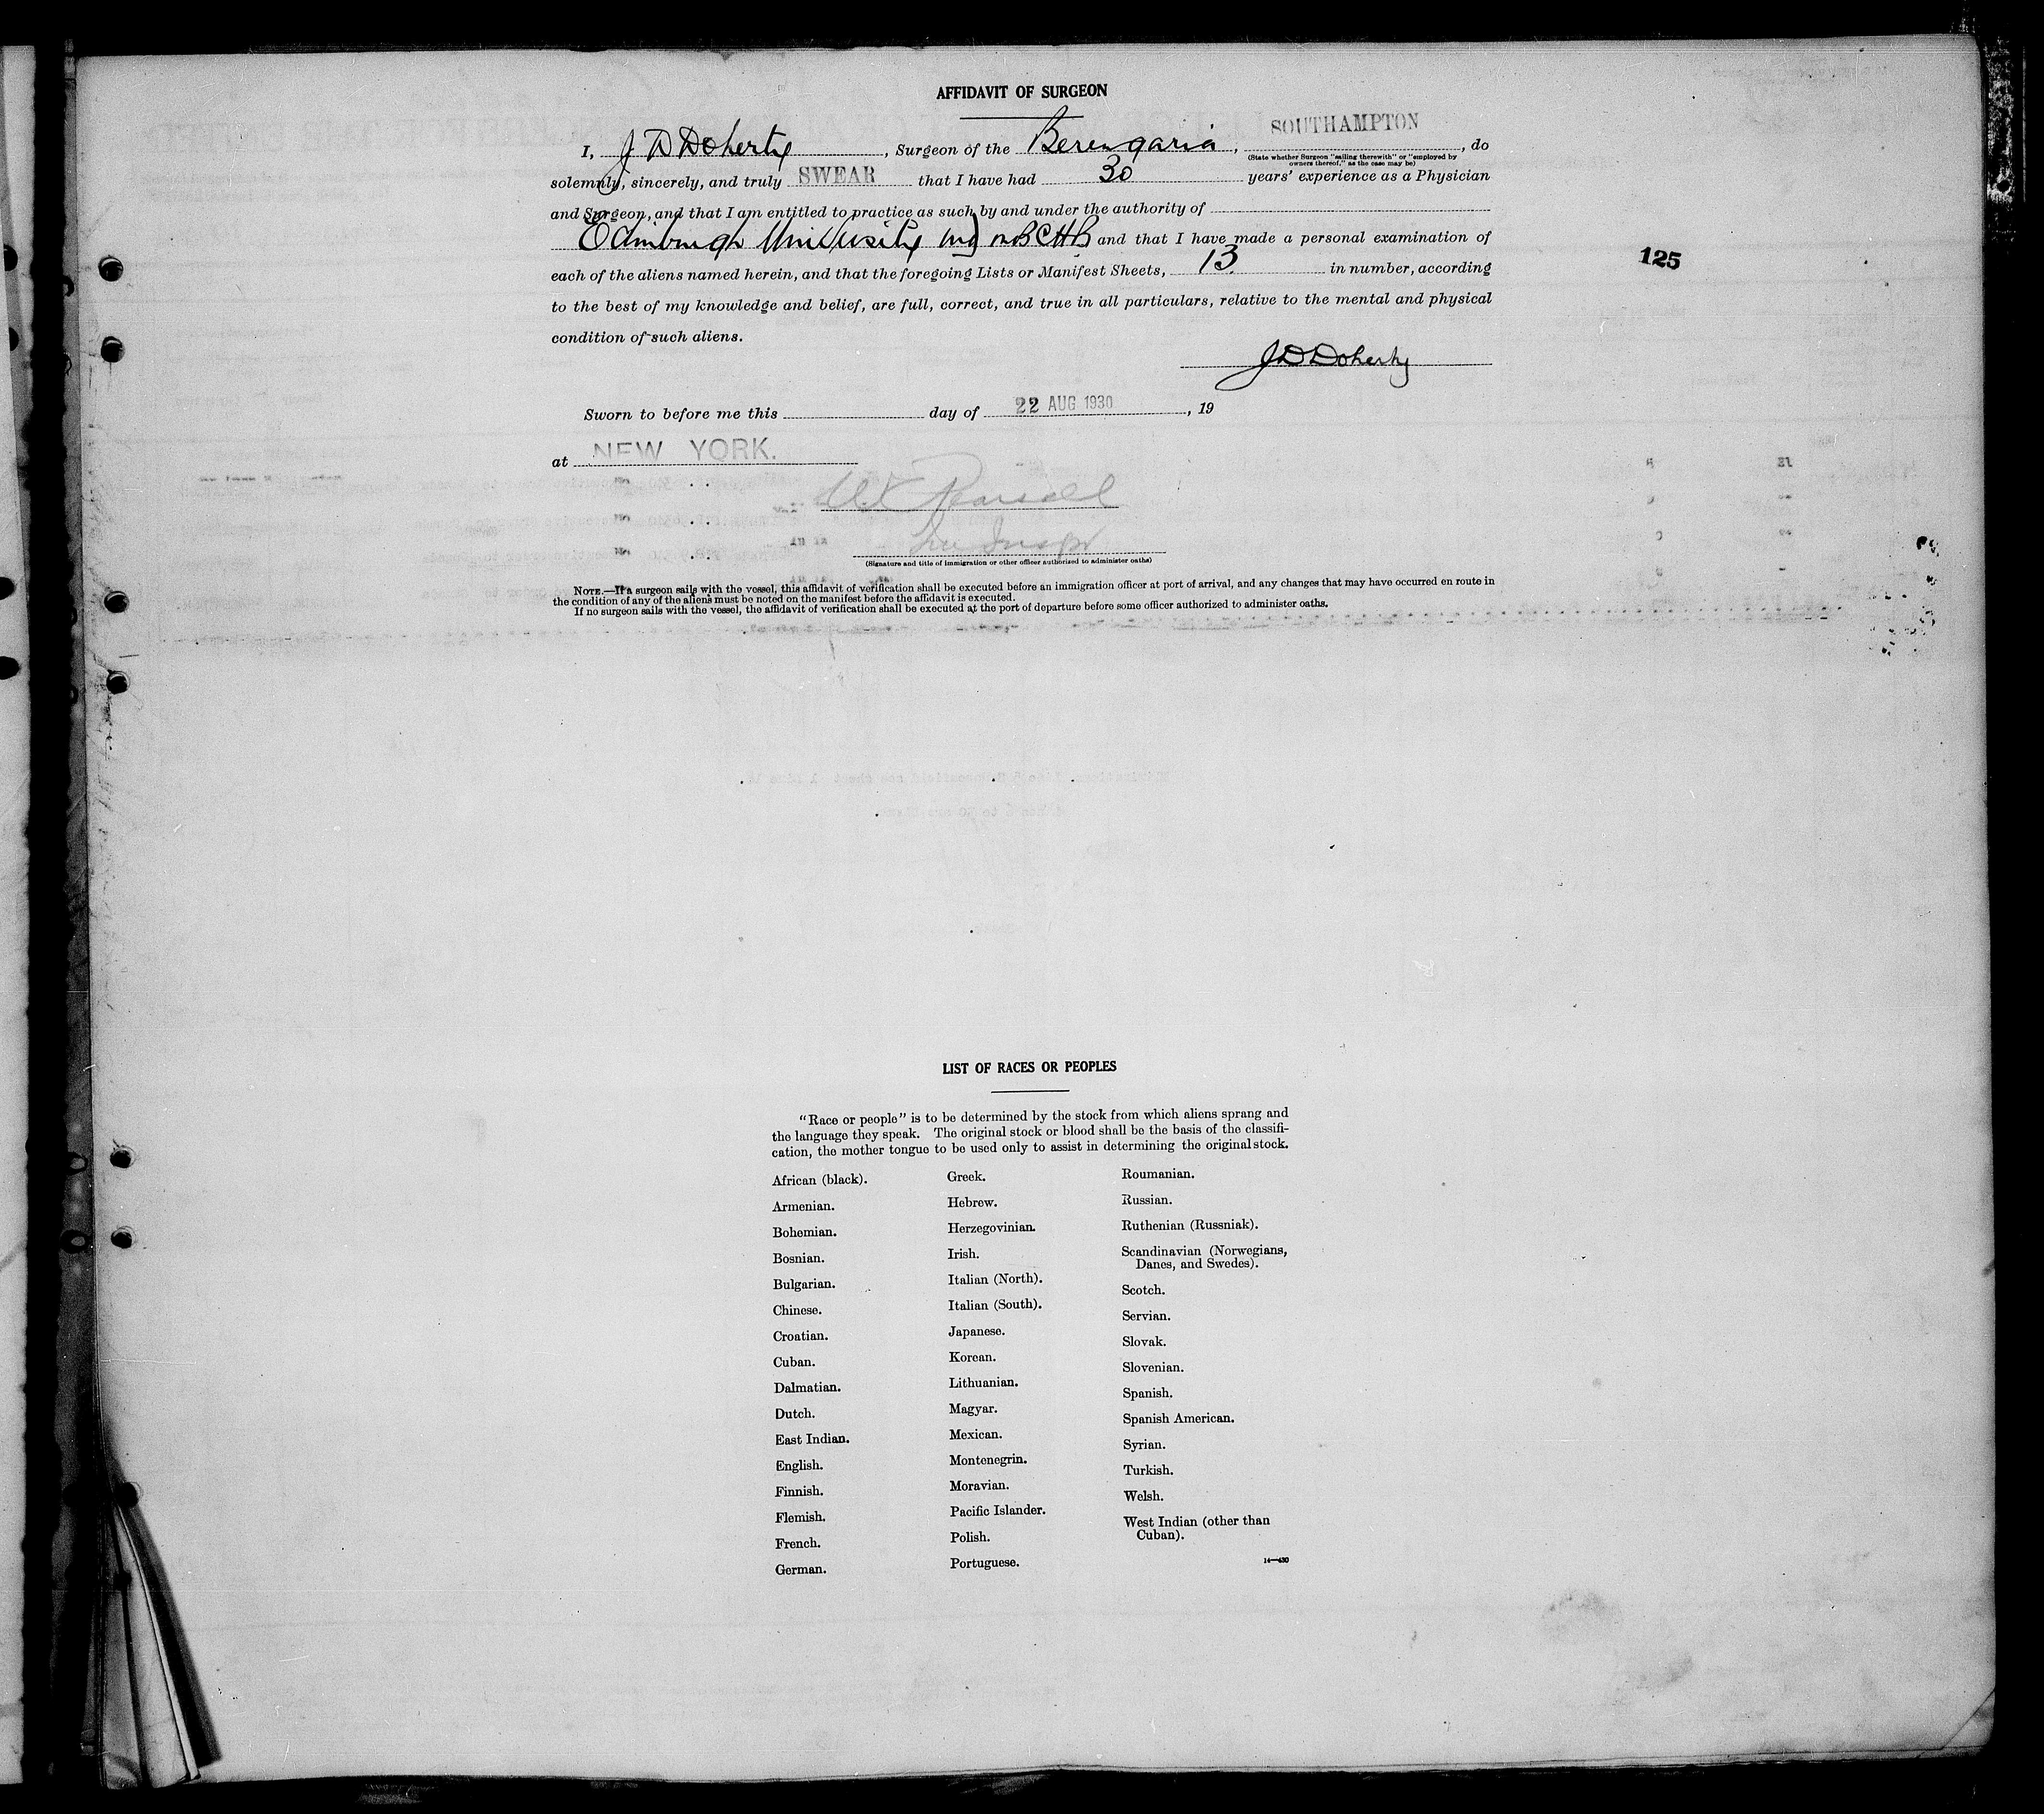 AFFIDAVIT OF SURGEON
SOUTHAMPTON
I, J D Doherty, Surgeon of the Berengaria, , do
(State whether Surgeon "sailing therewith" or "employed by
owners thereof," as the case may be)
solemnly, sincerely, and truly SWEAR that I have had 30 years' experience as a Physician
and Surgeon, and that I am entitled to practice as such by and under the authority of
Edinburgh University MD MBCHB and that I have made a personal examination of
125
each of the aliens named herein, and that the foregoing Lists or Manifest Sheets, 13 in number, according
to the best of my knowledge and belief, are full, correct, and true in all particulars, relative to the mental and physical
condition of such aliens.
J D Doherty
Sworn to before me this day of 22 AUG 1930, 19
at NEW YORK.
(Signature and title of immigration or other officer authorized to administer oaths)
NOTE.—If a surgeon sails with the vessel, this affidavit of verification shall be executed before an immigration officer at port of arrival, and any changes that may have occurred en route in
the condition of any of the aliens must be noted on the manifest before the affidavit is executed.
If no surgeon sails with the vessel, the affidavit of verification shall be executed at the port of departure before some officer authorized to administer oaths.
LIST OF RACES OR PEOPLES
"Race or people" is to be determined by the stock from which aliens sprang and
the language they speak. The original stock or blood shall be the basis of the classifi-
cation, the mother tongue to be used only to assist in determining the original stock.
African (black).
Armenian.
Bohemian.
Bosnian.
Bulgarian.
Chinese.
Croatian.
Cuban.
Dalmatian.
Dutch.
East Indian.
English.
Finnish.
Flemish.
French.
German.
Greek.
Hebrew.
Herzegovinian.
Irish.
Italian (North).
Italian (South).
Japanese.
Korean.
Lithuanian.
Magyar.
Mexican.
Montenegrin.
Moravian.
Pacific Islander.
Polish.
Portuguese.
Roumanian.
Russian.
Ruthenian (Russniak).
Scandinavian (Norwegians,
Danes, and Swedes).
Scotch.
Servian.
Slovak.
Slovenian.
Spanish.
Spanish American.
Syrian.
Turkish.
Welsh.
West Indian (other than
Cuban).
14—430